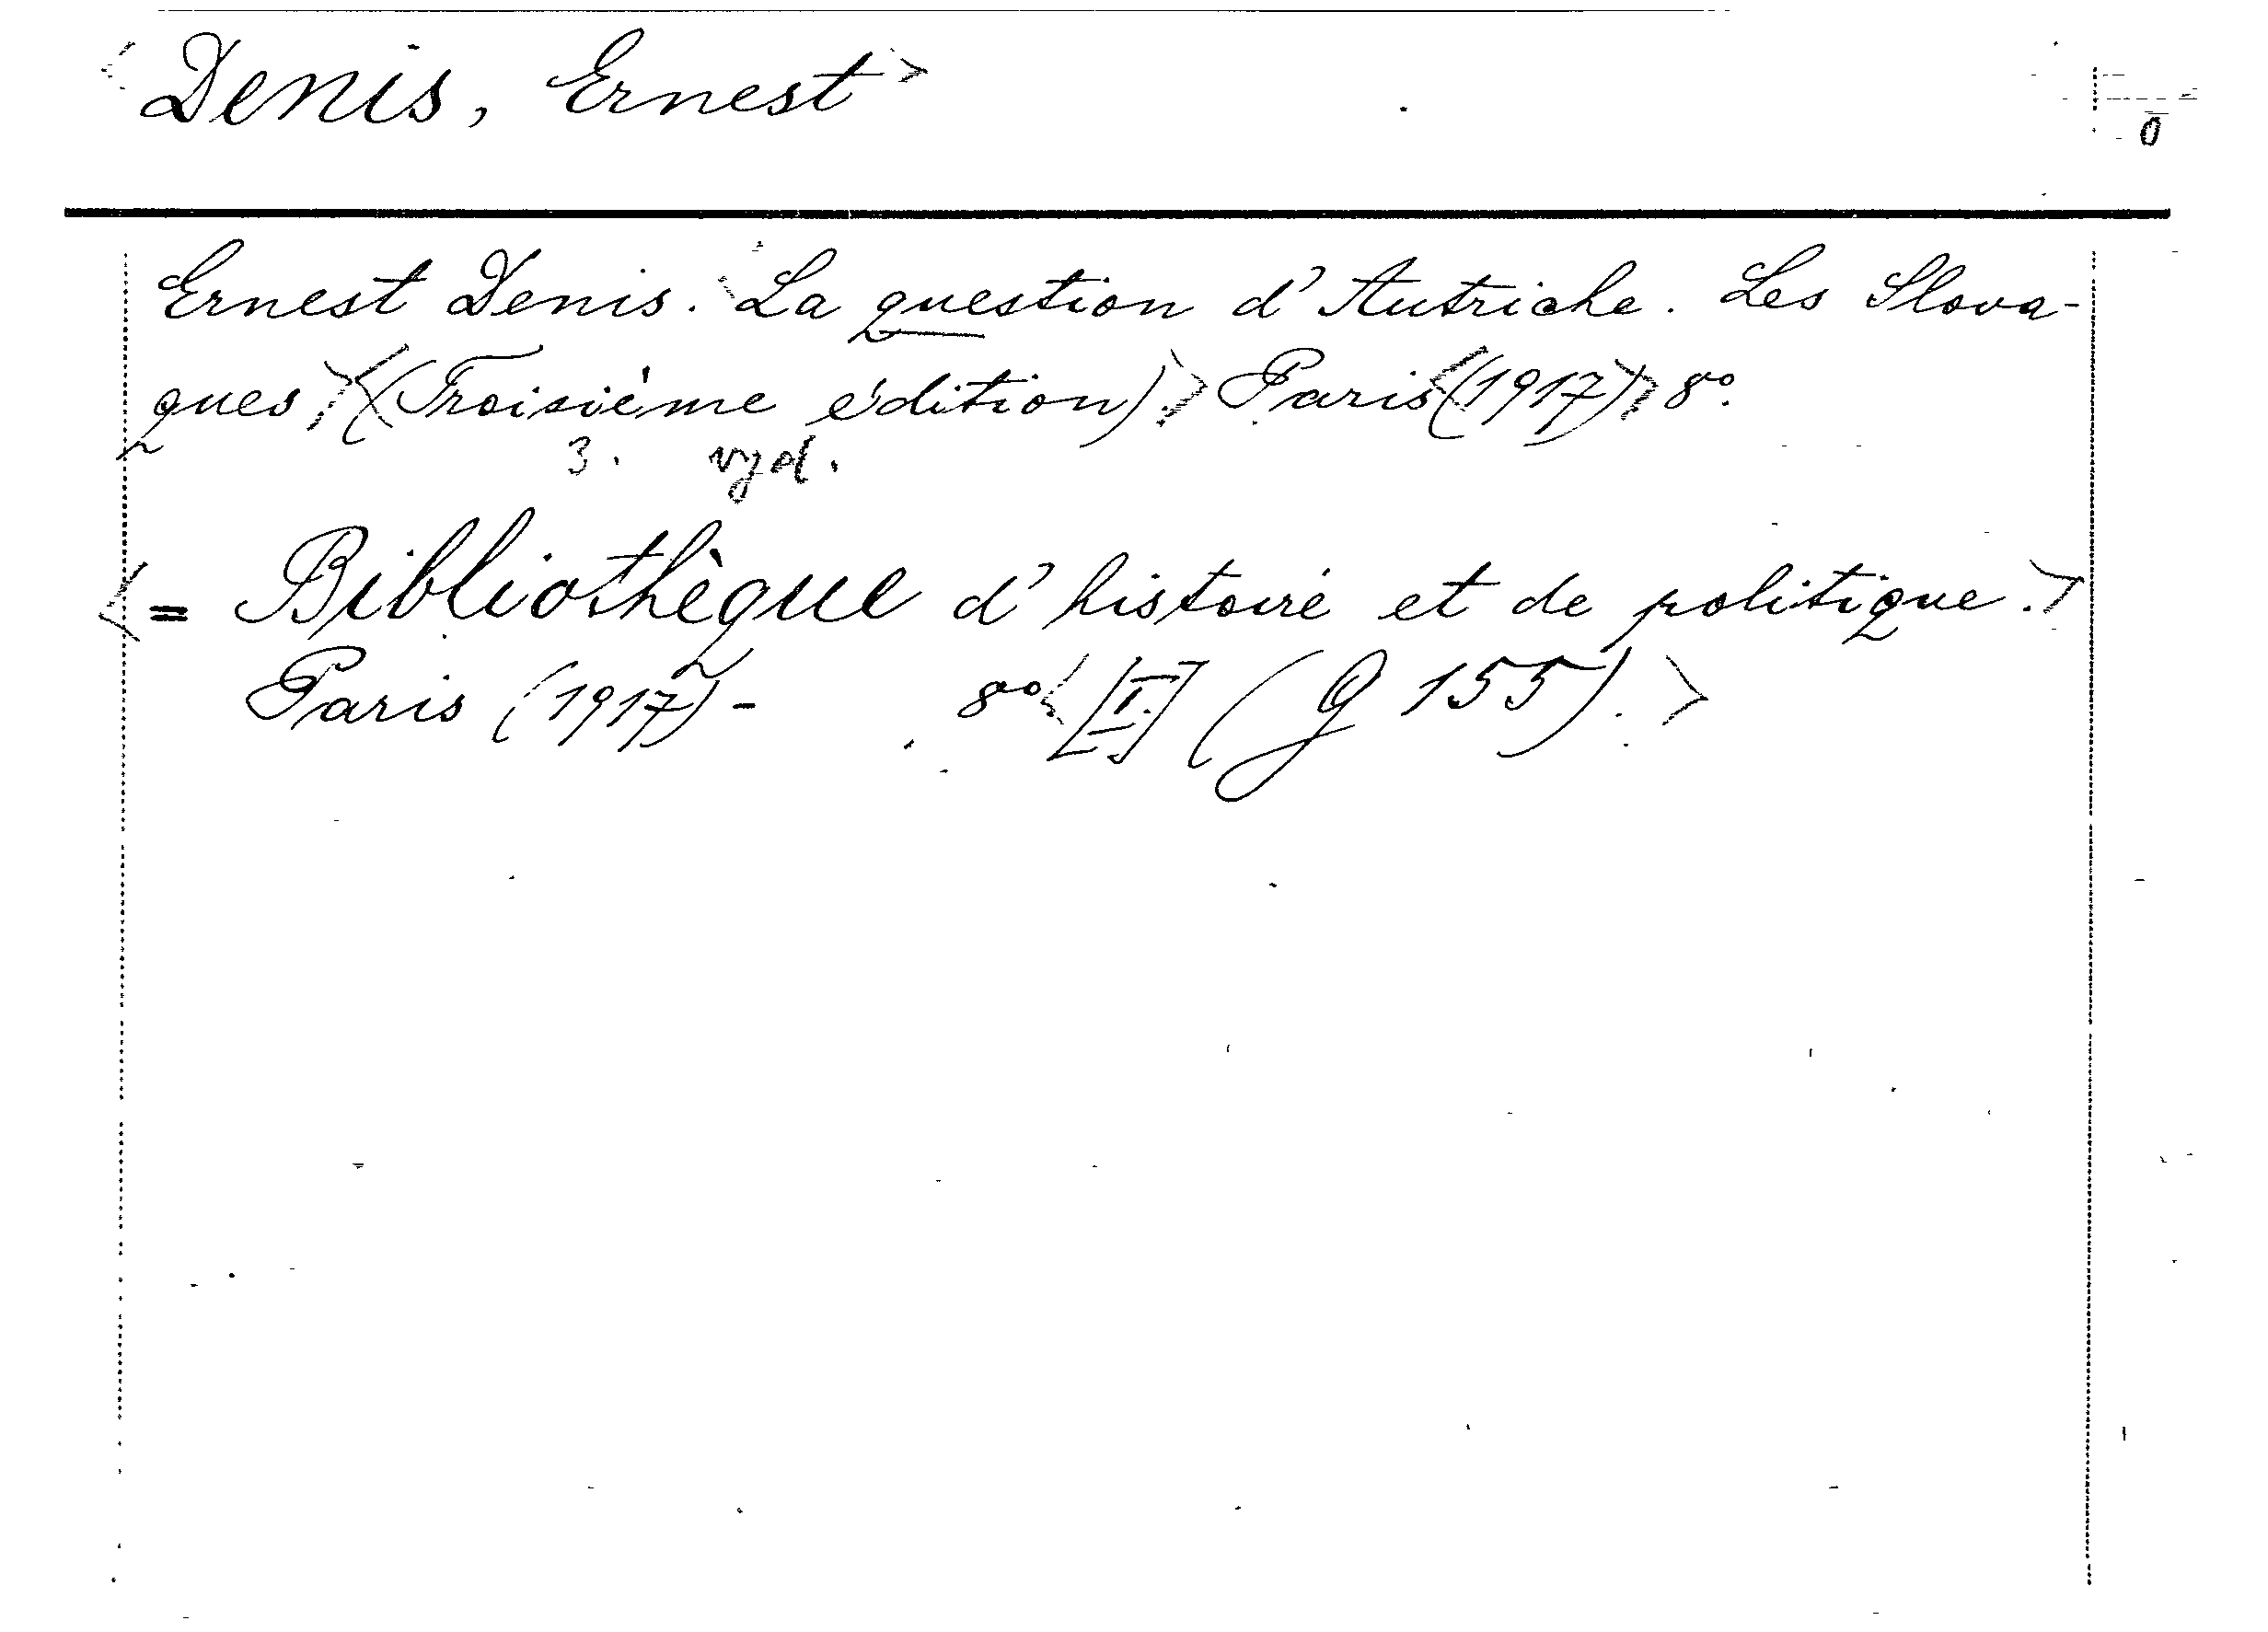 <Denis, Ernest>
0
Ernest Denis. <La question d'Autriche. Les Slova-
ques> <(Troisième édition).> Paris <(1917)> 8º.
3. vyd.
<= Bibliothèque d'histoire et de politique.>
Paris (1917) - 8º <[I.] (G 155).>